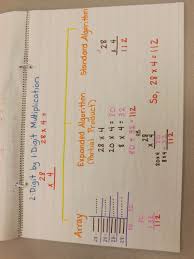 2 Digit by 1 Digit Multiplication
28 × 4 =
28
× 4
Array
Expanded Algorithm
(Partial Product)
28 × 4
20 × 4 = 80
8 × 4 = 32
80 + 32 = 112
28
× 4
112
Standard Algorithm
28
× 4
112
So, 28 × 4 = 112